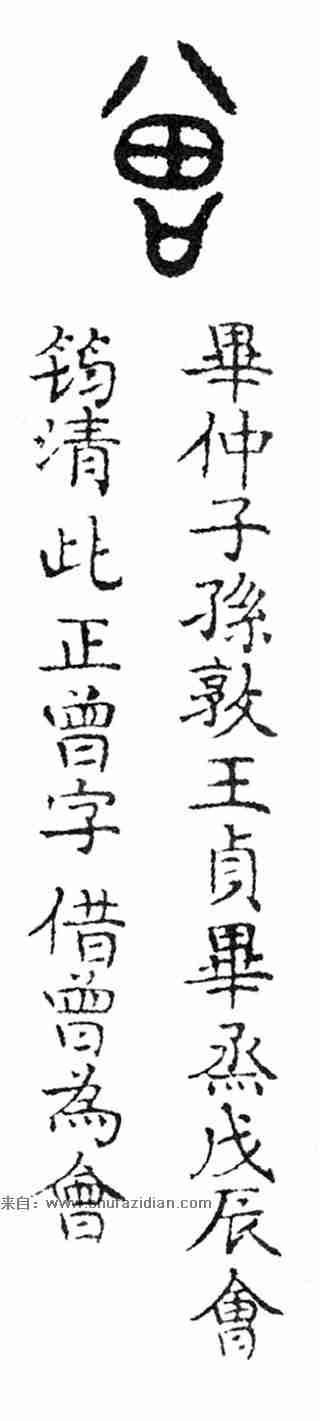 曾
畢仲子孫敦王貞畢烝戊辰會
筠清此正曾字借曾為會
来自：www.shufazidian.com